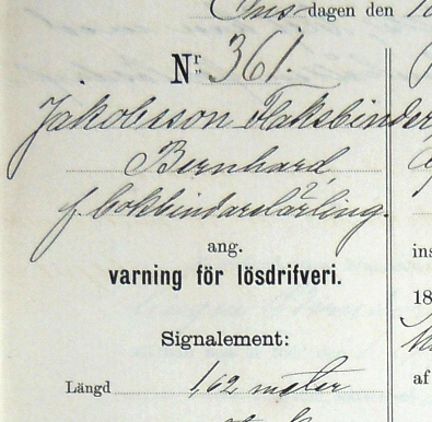 Ons dagen den
Nr 361.
Jakobsson Flaksbinder
Bernhard
f. bokbindarelärling.
ang.
varning för lösdrifveri.
ins
18
Signalement:
Längd 1,62 meter
af